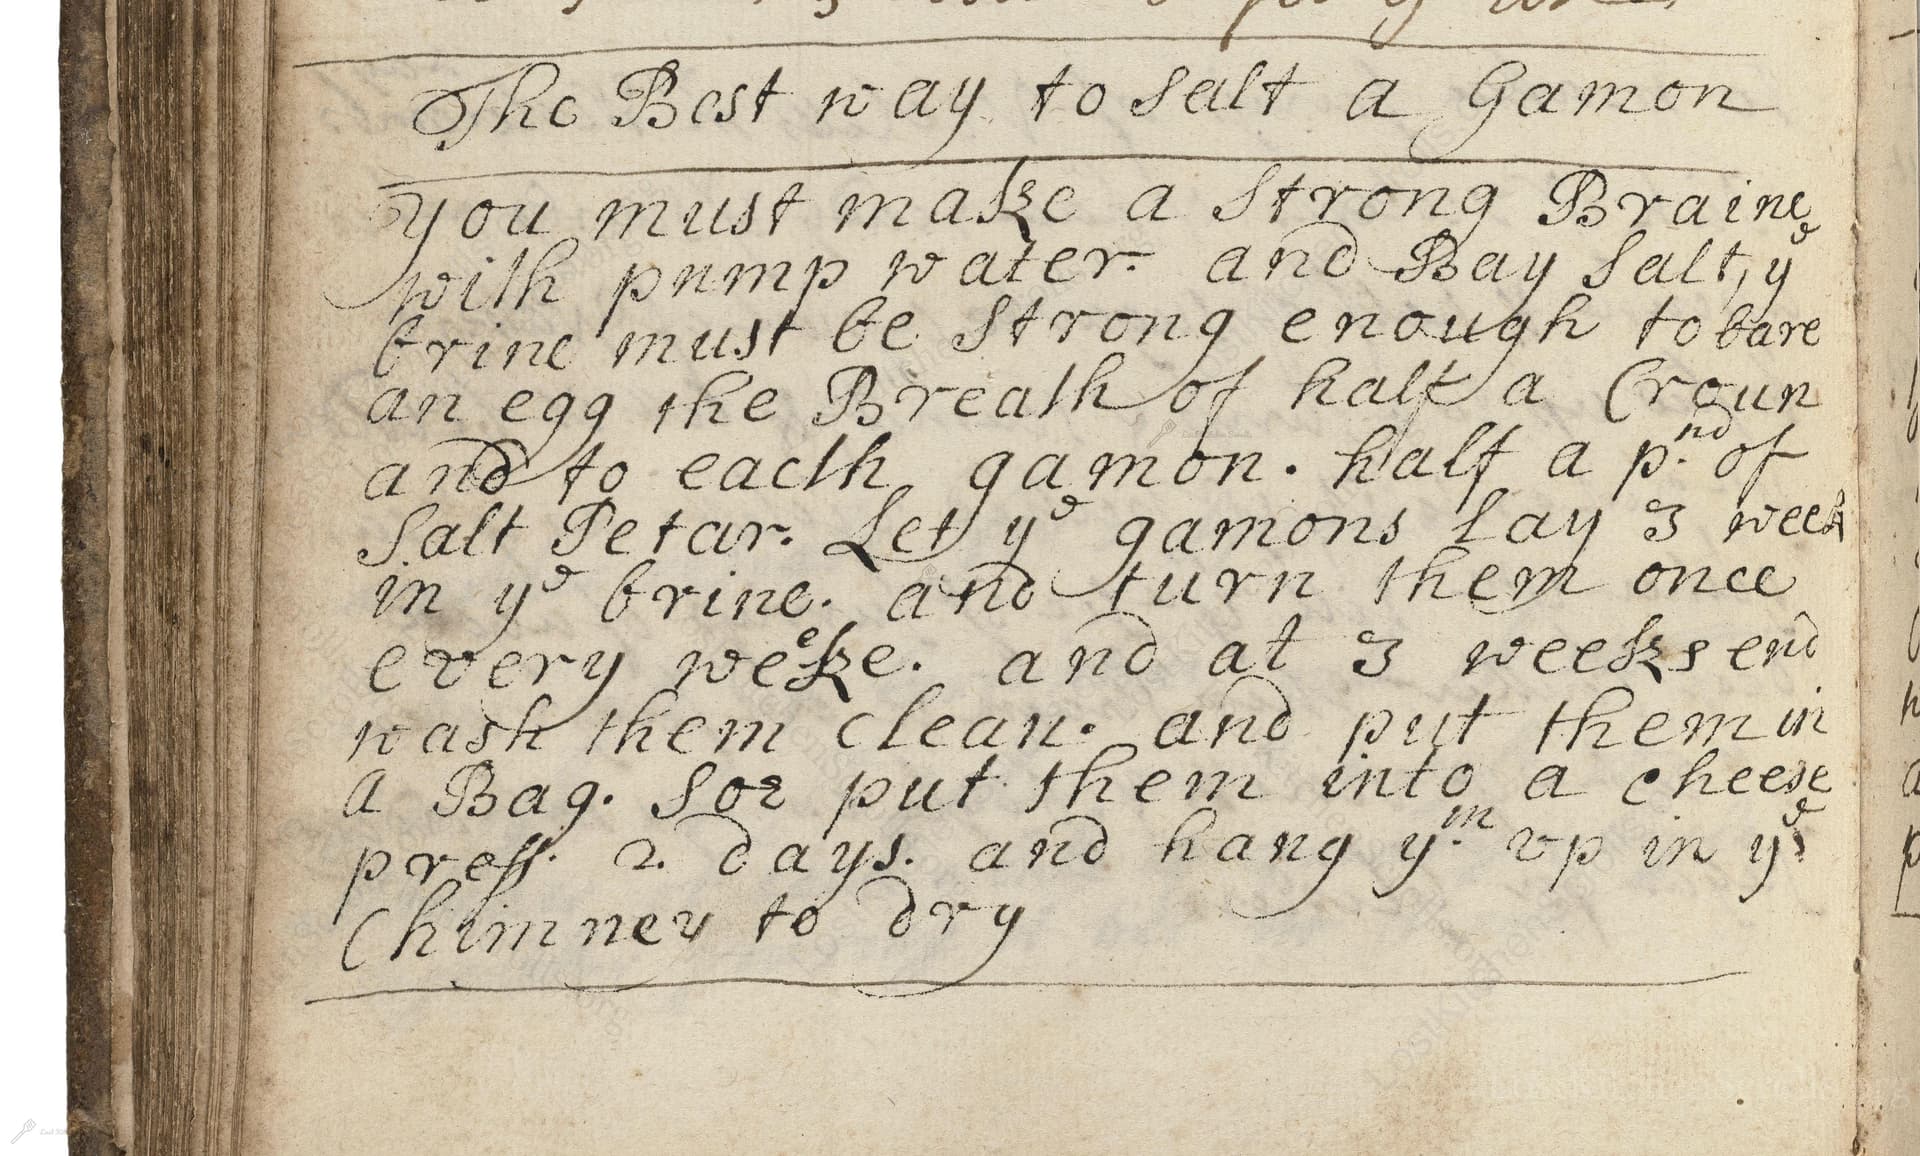 The Best way to Salt a Gamon
you must make a Strong Braine
with pump water. and Bay Salt, yᵉ
brine must be Strong enough to bare
an egg the Breath of half a Croun
and to eacth gamon. half a p.ⁿᵈ of
Salt Petar. Let yᵉ gamons lay 3 week
in yᵉ brine. and turn them once
every weeke. and at 3 weeks end
wash them clean. and put them in
a Bag. Sor put them into a cheese
press. 2. days. and hang y.ᵐ vp in yᵉ
Chimney to dry